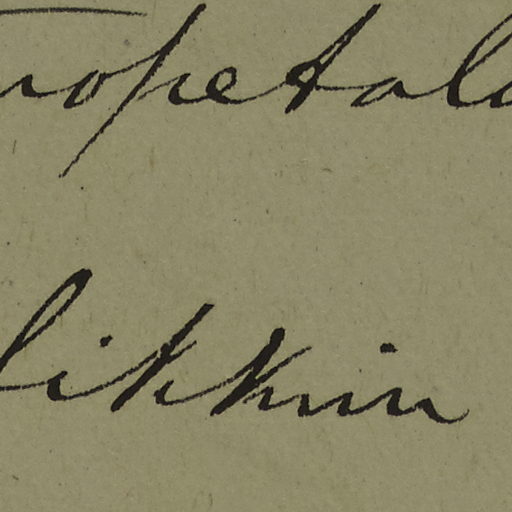 ropetala
likkin